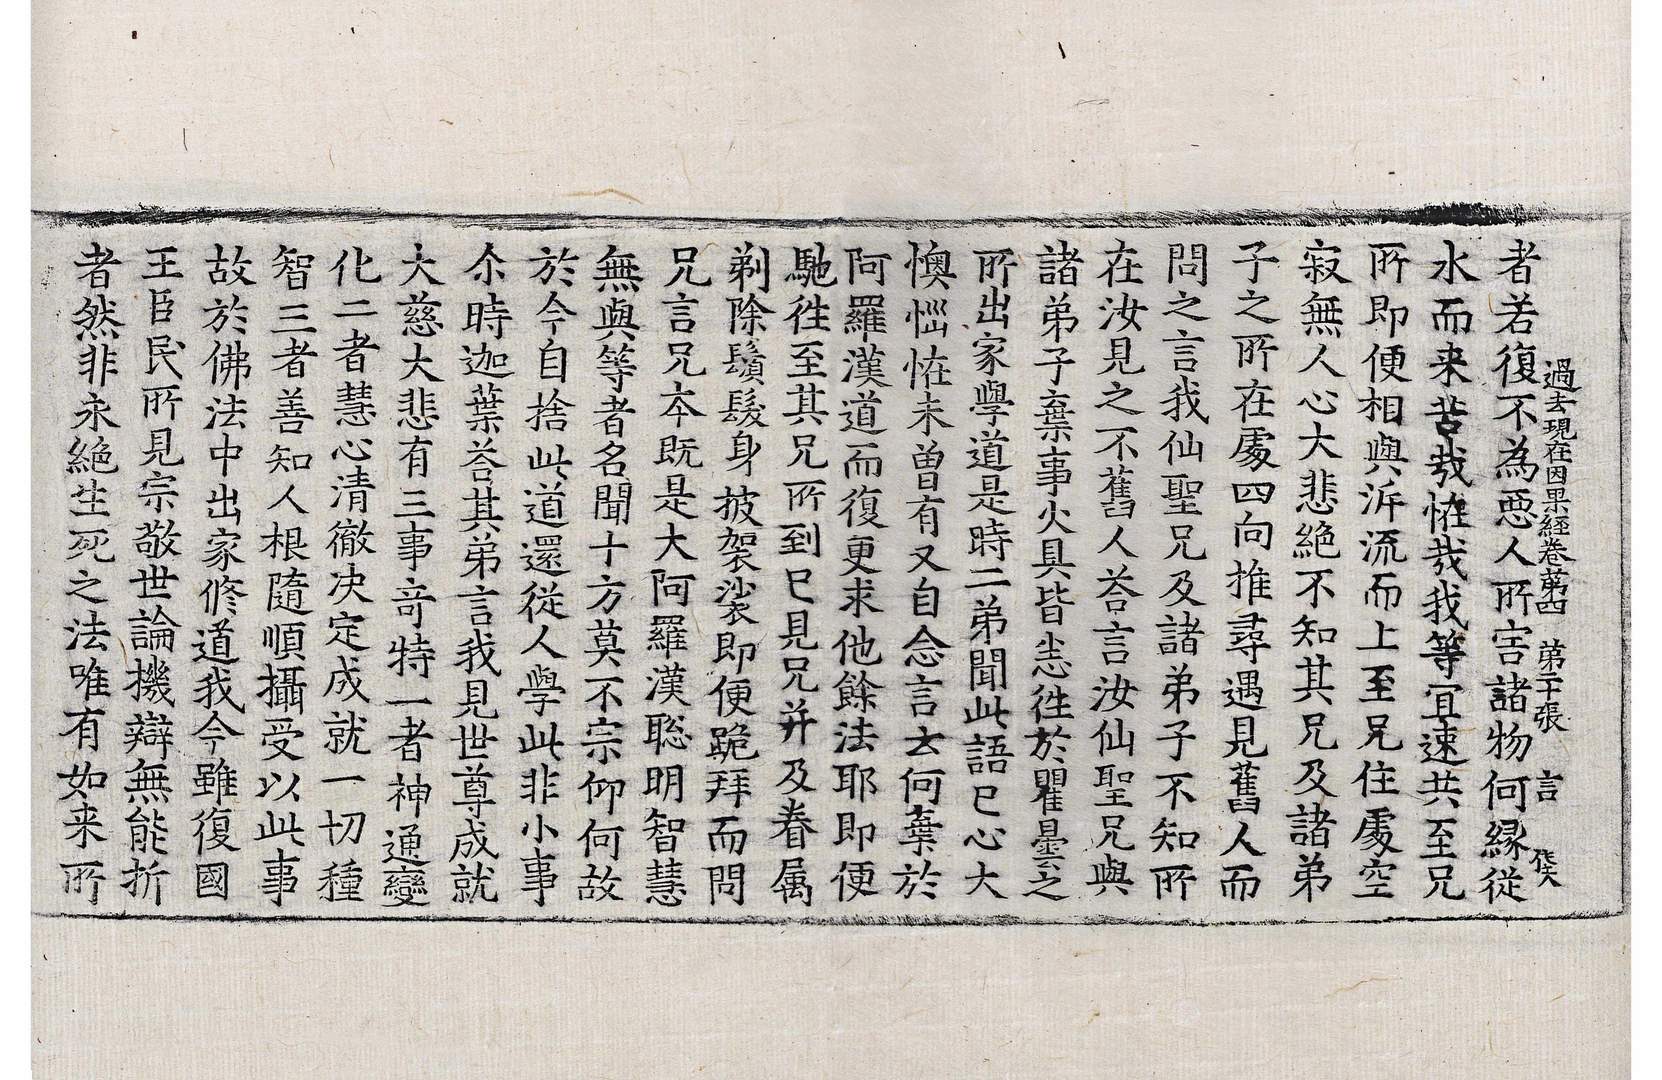 過去現在因果經卷第四　第二十張　言
者若復不為惡人所害諸物何緣從
水而来苦㢤恠㢤我等宜速共至兄
所即便相與泝流而上至兄住處空
寂無人心大悲絕不知其兄及諸弟
子之所在處四向推尋遇見舊人而
問之言我仙聖兄及諸弟子不知所
在汝見之不舊人荅言汝仙聖兄與
諸弟子棄事火具皆悉徃於瞿曇之
所出家學道是時二弟聞此語已心大
懊惱恠未曾有又自念言云何棄於
阿羅漢道而復更求他餘法耶即便
馳徃至其兄所到已見兄并及眷属
剃除鬚髮身披袈裟即便跪拜而問
兄言兄夲既是大阿羅漢聡明智慧
無與等者名聞十方莫不宗仰何故
於今自捨此道還從人學此非小事
尒時迦葉荅其弟言我見世尊成就
大慈大悲有三事竒特一者神通變
化二者慧心清徹决定成就一切種
智三者善知人根隨順攝受以此事
故於佛法中出家修道我今雖復國
王臣民所見宗敬世論機辯無能折
者然非永絕生死之法唯有如来所